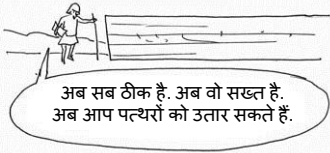 अब सब ठीक है. अब वो सख्त है.
अब आप पत्थरों को उतार सकते हैं.